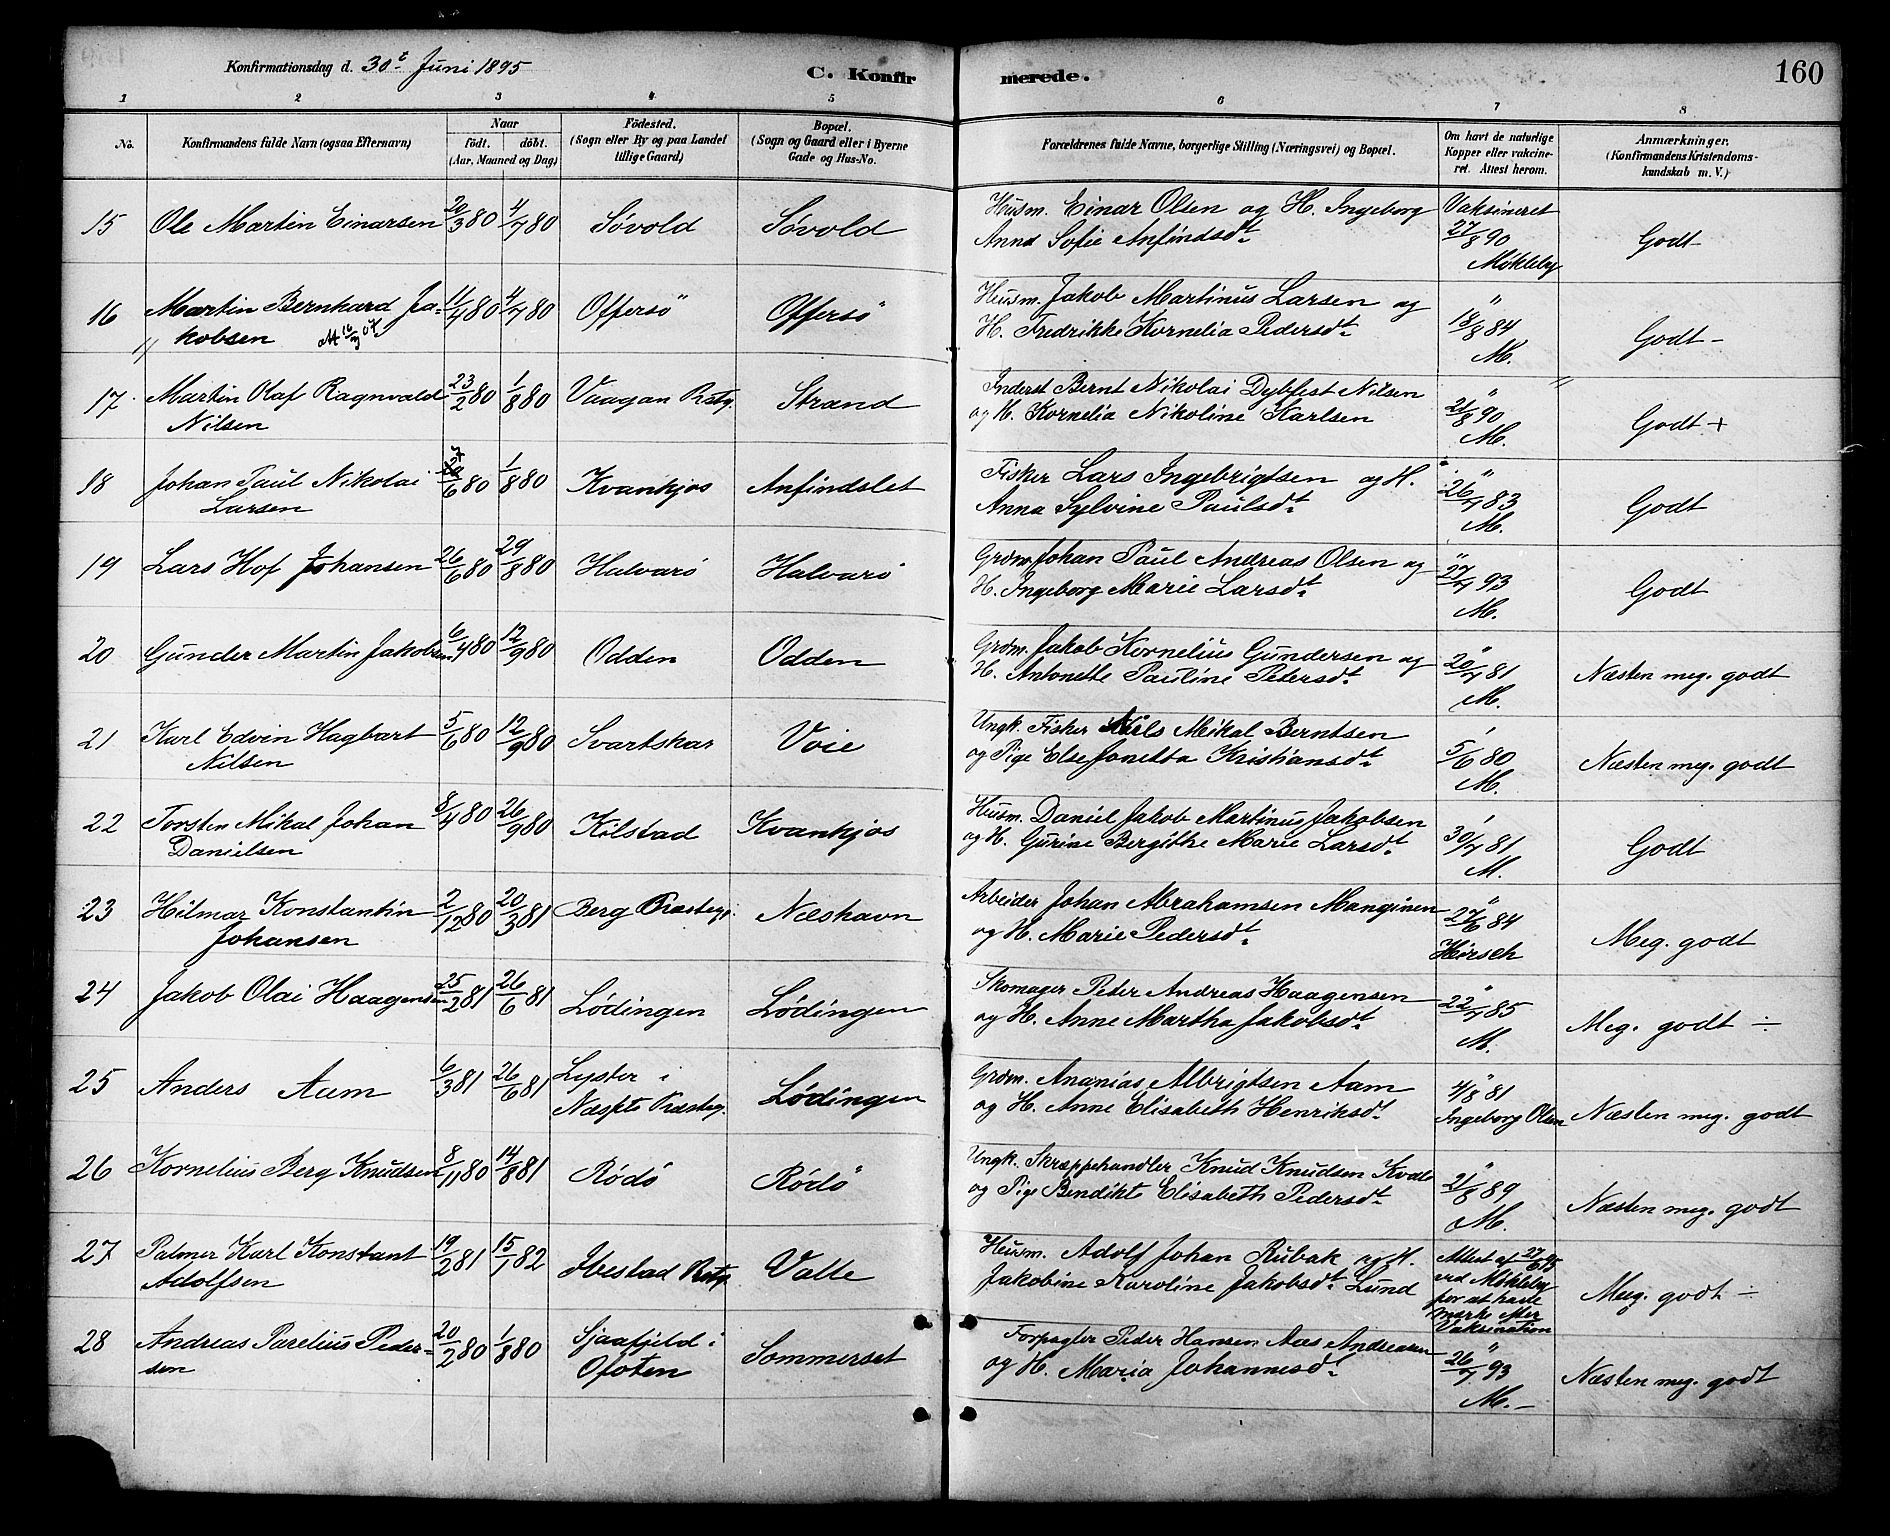 Konfirmationsdag d. 30t Juni 1895
C. Konfirmerede.
160
1 2 3 4 5 6 7 8
No.
Konfirmandens fulde Navn (ogsaa Efternavn)
Naar
födt. döbt.
(Aar, Maaned og Dag)
Födested.
(Sogn eller By og paa Landet
tillige Gaard)
Bopæl.
(Sogn og Gaard eller i Byerne
Gade og Hus-No.
Forældrenes fulde Navne, borgerlige Stilling (Næringsvei) og Bopæl.
Om havt de naturlige
Kopper eller vakcine-
ret. Attest herom.
Anmærkninger.
(Konfirmandens Kristendoms-
kundskab m. V.)
15 Ole Martin Einarsen 20/3 80 4/7 80 Søvold Søvold Husm. Einar Olsen og H. Ingeborg Vaksineret
Anna Sofie Anfindsdt. 27/8 90 Godt
Møkleby
16 Martin Bernhard Ja- 11/4 80 4/7 80 Offersö Offersö Husm. Jakob Martinus Larsen og "
kobsen H. Fredrikke Kornelia Pedersdt. 18/8 84 Godt -
M.
17 Martin Olaf Ragnvald 23/2 80 1/8 80 Vaagan Pstg. Strand Inderst Bernt Nikolai Dybfest Nilsen "
Nilsen og H. Kornelia Nikoline Karlsen 21/8 90 Godt +
M.
18 Johan Paul Nikolai /6 80 1/8 80 Kvankjos Anfindslet Fisker Lars Ingebrigtsen og H. "
Larsen Anna Sylvine Paulsdt. 26/7 83 Godt
M.
19 Lars Hof Johansen 26/6 80 29/8 80 Halvarö Halvarö Grdm. Johan Paul Andreas Olsen og "
H. Ingeborg Marie Larsdt. 27/7 93 Godt
M.
20 Gunder Martin Jakobsen 6/4 80 12/9 80 Odden Odden Grdm. Jakob Kornelius Gundersen og "
H. Antonette Pauline Pedersdt. 20/7 81 Næsten meg. godt
M.
21 Karl Edvin Hagbart 5/6 80 12/9 80 Svartskar Voie Ungk. Fisker Nils Mikal Berntsen
Nilsen og Pige Else Jonetta Kristiansdt. 5/6 80 Næsten meg. godt
M.
22 Torsten Mikal Johan 8/4 80 26/9 80 Kilstad Kvankjos Husm. Daniel Jakob Martinus Jakobsen
Danielsen og H. Gurine Bergithe Marie Larsdt. 30/7 81 Godt
M.
23 Hilmar Konstantin 2/12 80 20/3 81 Berg Præsteg. Næshavn Arbeider Johan Abrahamsen Manginen "
Johansen og H. Marie Pedersdt. 27/6 84 Meg. godt
Hirsch
24 Jakob Olai Haagensen 25/2 81 26/6 81 Lødingen Lødingen Skomager Peder Andreas Haagensen "
og H. Anne Martha Jakobsdt. 22/7 85 Meg. godt ÷
M.
25 Anders Aam 6/3 81 26/6 81 Lyster i Lødingen Grdm. Ananias Albrigtsen Aam 4/8 81
Præsteg. og H. Anne Elisabeth Henriksdt. Ingeborg Olsen Næsten meg. godt
26 Kornelius Berg Knudsen 8/11 80 14/8 81 Rödö Rödö Ungk. Skræppehandler Knud Knudsen Kvale "
og Pige Bendikte Elisabeth Pedersdt. 21/8 89 Næsten meg. godt
M.
27 Palmer Karl Konstant 19/2 81 15/1 82 Ibestad Pstg. Valle Husm. Adolf Johan Rubak og H. Attest af
Adolfsen Jakobine Karoline Jakobsdt. Lund ved Møkleby Meg. godt ÷
for at have
mærke efter
Vaksination
28 Andreas Parelius Peder- 20/2 80 1/8 80 Sjaafjeld i Sommerset Forpagter Peder Hansen Aas Andreasen "
sen Ofoten og H. Maria Johannesdt. 26/7 93 Næsten meg. godt
M. -